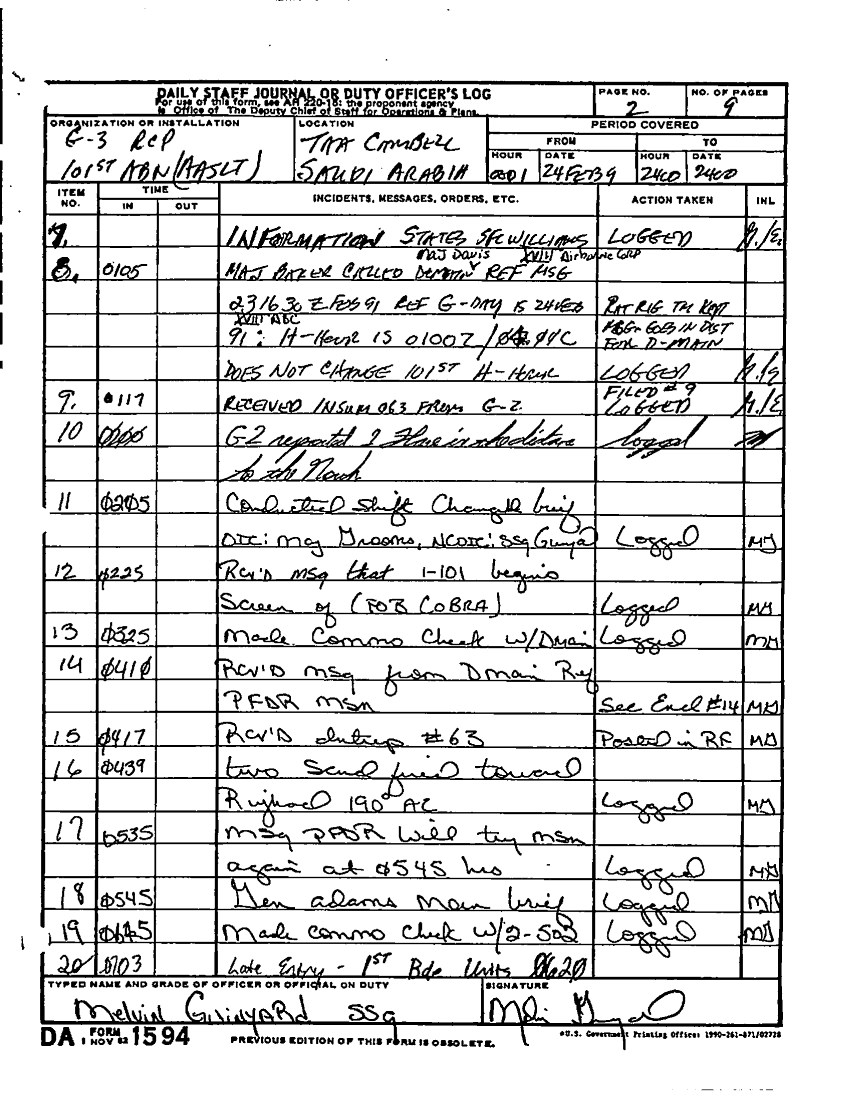 DAILY STAFF JOURNAL OR DUTY OFFICER'S LOG
For use of this form, see AR 220-15; the proponent agency
is Office of The Deputy Chief of Staff for Operations & Plans.
PAGE NO.
2
NO. OF PAGES
9
ORGANIZATION OR INSTALLATION
G-3 RCP
101ST ABN (AASLT)
LOCATION
TAA CAMPBELL
SAUDI ARABIA
PERIOD COVERED
FROM
TO
HOUR
0001
DATE
24FEB9
HOUR
2400
DATE
2400
ITEM NO.
TIME
IN
OUT
INCIDENTS, MESSAGES, ORDERS, ETC.
ACTION TAKEN
INL
7. INFORMATION STATES SFC WILLIAMS LOGGED
MAJ Davis XVIII Airborne Corp
8. 0105 MAJ BAKER CALLED DEMAIN REF MSG
231630Z FEB91 REF G-DAY IS 24FEB RATRIG TM KEPT
XVIII ABC
91: H-HOUR IS 0100Z / 04C MSG GOES IN DIST
FOR D-MAIN
DOES NOT CHANGE 101ST H-HOUR LOGGED
FILED # 9
9. 0117 RECEIVED INSUM 063 FROM G-2. LOGGED
10 G2 reported 2 logged
to the North
11 0205 Conducted Shift Change brief
OIC: Maj Grooms, NCOIC: SSG Logged MG
12 0225 Rcv'd msg that 1-101 begins
Screen of (FOB COBRA) Logged MG
13 0325 Made Commo Check w/Dmain Logged MG
14 0410 RCV'D msg from Dmain Ref
PFDR MSN See Encl #14 MG
15 0417 RCV'D Intrep #63 Posted in RF MG
16 0439 two Scud fired toward
190° AZ Logged MG
17 0535 msg PFDR Will try msn
again at 0545 hrs Logged MG
18 0545 Gen adams Main brief Logged MG
19 0645 Made commo check w/2-502 Logged MG
20 0703 Late Entry - 1ST Bde Units 0620
TYPED NAME AND GRADE OF OFFICER OR OFFICIAL ON DUTY
Melvin Gilinyard SSG
SIGNATURE
DA FORM 1 NOV 62 1594
PREVIOUS EDITION OF THIS FORM IS OBSOLETE.
*U.S. Government Printing Office: 1990-261-871/02728